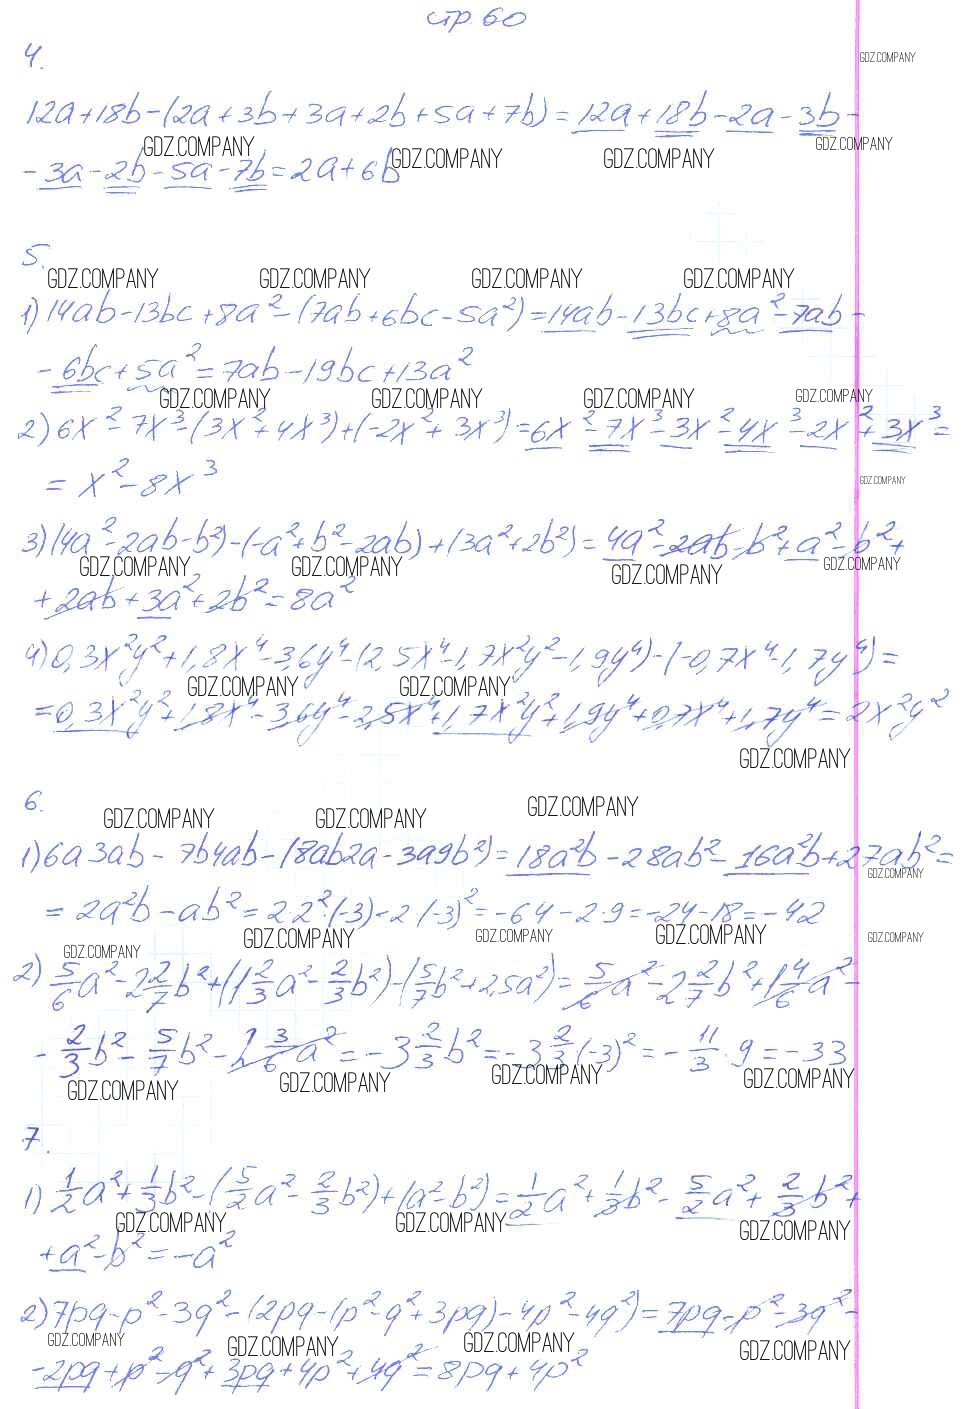 стр. 60
4.
GDZ.COMPANY
12a+18b-(2a+3b+3a+2b+5a+7b)=12a+18b-2a-3b-
GDZ.COMPANY GDZ.COMPANY GDZ.COMPANY GDZ.COMPANY
-3a-2b-5a-7b=2a+6b
5.
GDZ.COMPANY GDZ.COMPANY GDZ.COMPANY GDZ.COMPANY
1) 14ab-13bc+8a²-(7ab+6bc-5a²)=14ab-13bc+8a²-7ab-
-6bc+5a²=7ab-19bc+13a²
GDZ.COMPANY GDZ.COMPANY GDZ.COMPANY GDZ.COMPANY
2) 6x²-7x³-(3x²+4x³)+(-2x²+3x³)=6x²-7x³-3x²-4x³-2x²+3x³=
= x²-8x³
GDZ.COMPANY
3) (4a²-2ab-b²)-(-a²+b²-2ab)+(3a²+2b²)=4a²-2ab-b²+a²-b²+
GDZ.COMPANY GDZ.COMPANY GDZ.COMPANY GDZ.COMPANY
+2ab+3a²+2b²=8a²
4) 0,3x²y²+1,8x⁴-3,6y⁴-(2,5x⁴-1,7x²y²-1,9y⁴)-(-0,7x⁴-1,7y⁴)=
GDZ.COMPANY GDZ.COMPANY
=0,3x²y²+1,8x⁴-3,6y⁴-2,5x⁴+1,7x²y²+1,9y⁴+0,7x⁴+1,7y⁴=2x²y²
GDZ.COMPANY
6.
GDZ.COMPANY GDZ.COMPANY GDZ.COMPANY
1) 6a3ab-7b4ab-(8ab2a-3a9b²)=18a²b-28ab²-16a²b+27ab²=
GDZ.COMPANY
=2a²b-ab²=2·2²·(-3)-2·(-3)²=-64-2·9=-24-18=-42
GDZ.COMPANY GDZ.COMPANY GDZ.COMPANY GDZ.COMPANY GDZ.COMPANY
2) 5/6a²-2 2/7b²+(1 2/3a²-2/3b²)-(5/7b²+2,5a²)=5/6a²-2 2/7b²+1 4/6a²-
-2/3b²-5/7b²-2 3/6a²=-3 2/3b²=-3 2/3·(-3)²=-11/3·9=-33
GDZ.COMPANY GDZ.COMPANY GDZ.COMPANY GDZ.COMPANY
7.
1) 1/2a²+1/3b²-(5/2a²-2/3b²)+(a²-b²)=1/2a²+1/3b²-5/2a²+2/3b²+
GDZ.COMPANY GDZ.COMPANY GDZ.COMPANY
+a²-b²=-a²
2) 7pq-p²-3q²-(2pq-(p²-q²+3pq)-4p²-4q²)=7pq-p²-3q²-
GDZ.COMPANY GDZ.COMPANY GDZ.COMPANY GDZ.COMPANY
-2pq+p²-q²+3pq+4p²+4q²=8pq+4p²